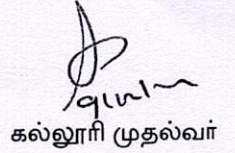 கல்லூரி முதல்வர்